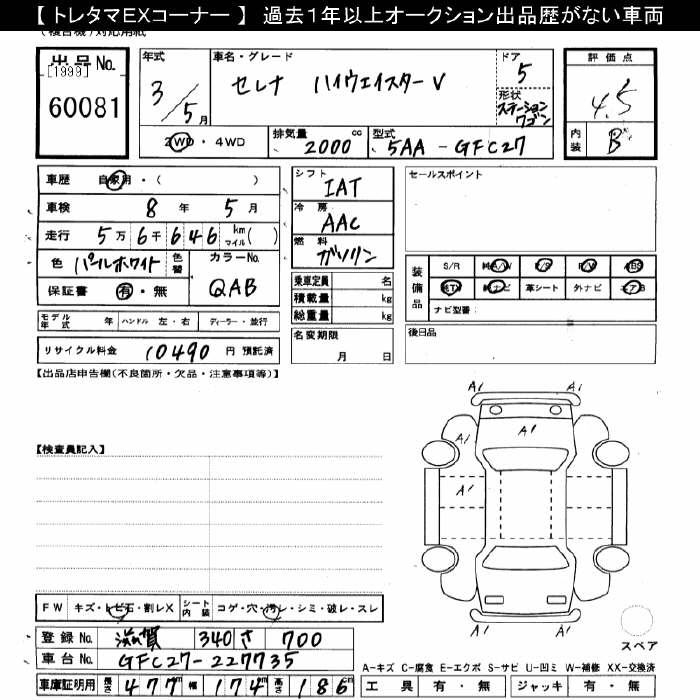 【 トレタマEXコーナー 】 過去1年以上オークション出品歴がない車両
(複合機)対応用紙
出品No. [1999] 60081
年式 3/5月
車名・グレード セレナ ハイウェイスターV
ドア 5
形状 ステーションワゴン
2WD・4WD
排気量 2000 cc
型式 5AA-GFC27
評価点 4.5
内装 B
車歴 自家用・( )
車検 8年 5月
走行 5万6千646 km マイル( )
色 パールホワイト 色替
カラーNo. QAB
保証書 有・無
モデル年式 年 ハンドル 左・右 ディーラー・並行
リサイクル料金 10490 円 預託済
シフト IAT
冷房 AAC
燃料 ガソリン
乗車定員 名
積載量 kg
総重量 kg
名変期限 月 日
セールスポイント
装備品 S/R 純A/W P/S P/W ABS
純TV 純ナビ 革シート 外ナビ エアB
ナビ型番:
後日品
【出品店申告欄(不良箇所・欠品・注意事項等)】
【検査員記入】
A1 A1
A1
A1
A1
FW キズ・トビ石・割レX シート内装 コゲ・穴・汚レ・シミ・破レ・スレ
登録No. 滋賀 340 さ 700
車台No. GFC27-227735
車庫証明用 長さ 477 幅 174cm 高さ 186cm
スペア
A-キズ C-腐食 E-エクボ S-サビ U-凹ミ W-補修 XX-交換済
工具 有・無 ジャッキ 有・無